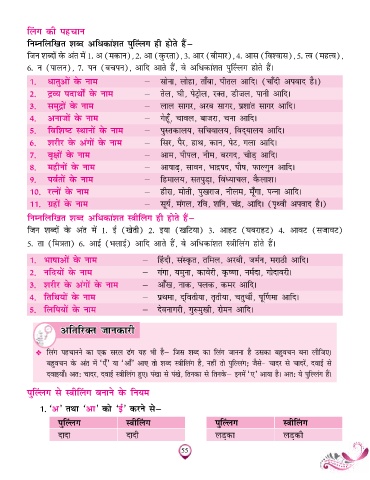 लिंग की पहचान
निम्नलिखित शब्द अधिकांशत पुल्लिंग ही होते हैं–
जिन शब्दों के अंत में 1. अ (मकान), 2. आ (कुरता), 3. आर (बीमार), 4. आस (विश्वास), 5. त्व (महत्त्व),
6. न (पालन), 7. पन (बचपन), आदि आते हैं, वे अधिकांशत पुल्लिंग होते हैं।
1. धातुओं के नाम – सोना, लोहा, ताँबा, पीतल आदि। (चाँदी अपवाद है।)
2. द्रव्य पदार्थों के नाम – तेल, घी, पेट्रोल, रक्त, डीजल, पानी आदि।
3. समुद्रों के नाम – लाल सागर, अरब सागर, प्रशांत सागर आदि।
4. अनाजों के नाम – गेहूँ, चावल, बाजरा, चना आदि।
5. विशिष्ट स्थानों के नाम – पुस्तकालय, सचिवालय, विद्यालय आदि।
6. शरीर के अंगों के नाम – सिर, पैर, हाथ, कान, पेट, गला आदि।
7. वृक्षों के नाम – आम, पीपल, नीम, बरगद, चीड़ आदि।
8. महीनों के नाम – आषाढ़, सावन, भाद्रपद, पौष, फाल्गुन आदि।
9. पर्वतों के नाम – हिमालय, सतपुड़ा, विंध्याचल, कैलाश।
10. रत्नों के नाम – हीरा, मोती, पुखराज, नीलम, मूँगा, पन्ना आदि।
11. ग्रहों के नाम – सूर्य, मंगल, रवि, शनि, चंद्र, आदि। (पृथ्वी अपवाद है।)
निम्नलिखित शब्द अधिकांशत स्त्रीलिंग ही होते हैं–
जिन शब्दों के अंत में 1. ई (खेती) 2. इया (खटिया) 3. आहट (घबराहट) 4. आवट (सजावट)
5. ता (मित्रता) 6. आई (भलाई) आदि आते हैं, वे अधिकांशत स्त्रीलिंग होते हैं।
1. भाषाओं के नाम – हिंदी, संस्कृत, तमिल, अरबी, जर्मन, मराठी आदि।
2. नदियों के नाम – गंगा, यमुना, कावेरी, कृष्णा, नर्मदा, गोदावरी।
3. शरीर के अंगों के नाम – आँख, नाक, पलक, कमर आदि।
4. तिथियों के नाम – प्रथमा, द्वितीया, तृतीया, चतुर्थी, पूर्णिमा आदि।
5. लिपियों के नाम – देवनागरी, गुरुमुखी, रोमन आदि।
अतिरिक्त जानकारी
❖ लिंग पहचानने का एक सरल ढंग यह भी है– जिस शब्द का लिंग जानना है उसका बहुवचन बना लीजिए।
बहुवचन के अंत में ‘एँ’ या ‘आँ’ आए तो शब्द स्त्रीलिंग है, नहीं तो पुल्लिंग; जैसे– चादर से चादरें, दवाई से
दवाइयाँ। अत: चादर, दवाई स्त्रीलिंग हुए। पंखा से पंखे, तिनका से तिनके– इनमें ‘ए’ आया है। अत: ये पुल्लिंग हैं।
पुल्लिंग से स्त्रीलिंग बनाने के नियम
1. ‘अ’ तथा ‘आ’ को ‘ई’ करने से–
पुल्लिंग स्त्रीलिंग पुल्लिंग स्त्रीलिंग
दादा दादी लड़का लड़की
55